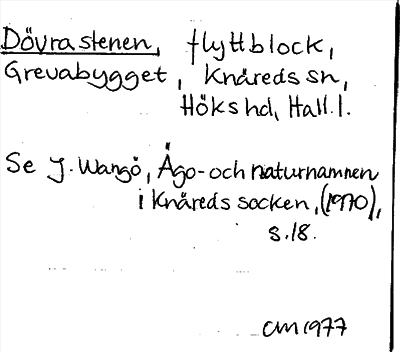 Dövrastenen, flyttblock,
Grevabygget, Knäreds sn,
Höks hd, Hall. l.
Se J. Wangö, Ägo- och naturnamnen
i Knäreds socken, (1970),
s. 18.
CM 1977